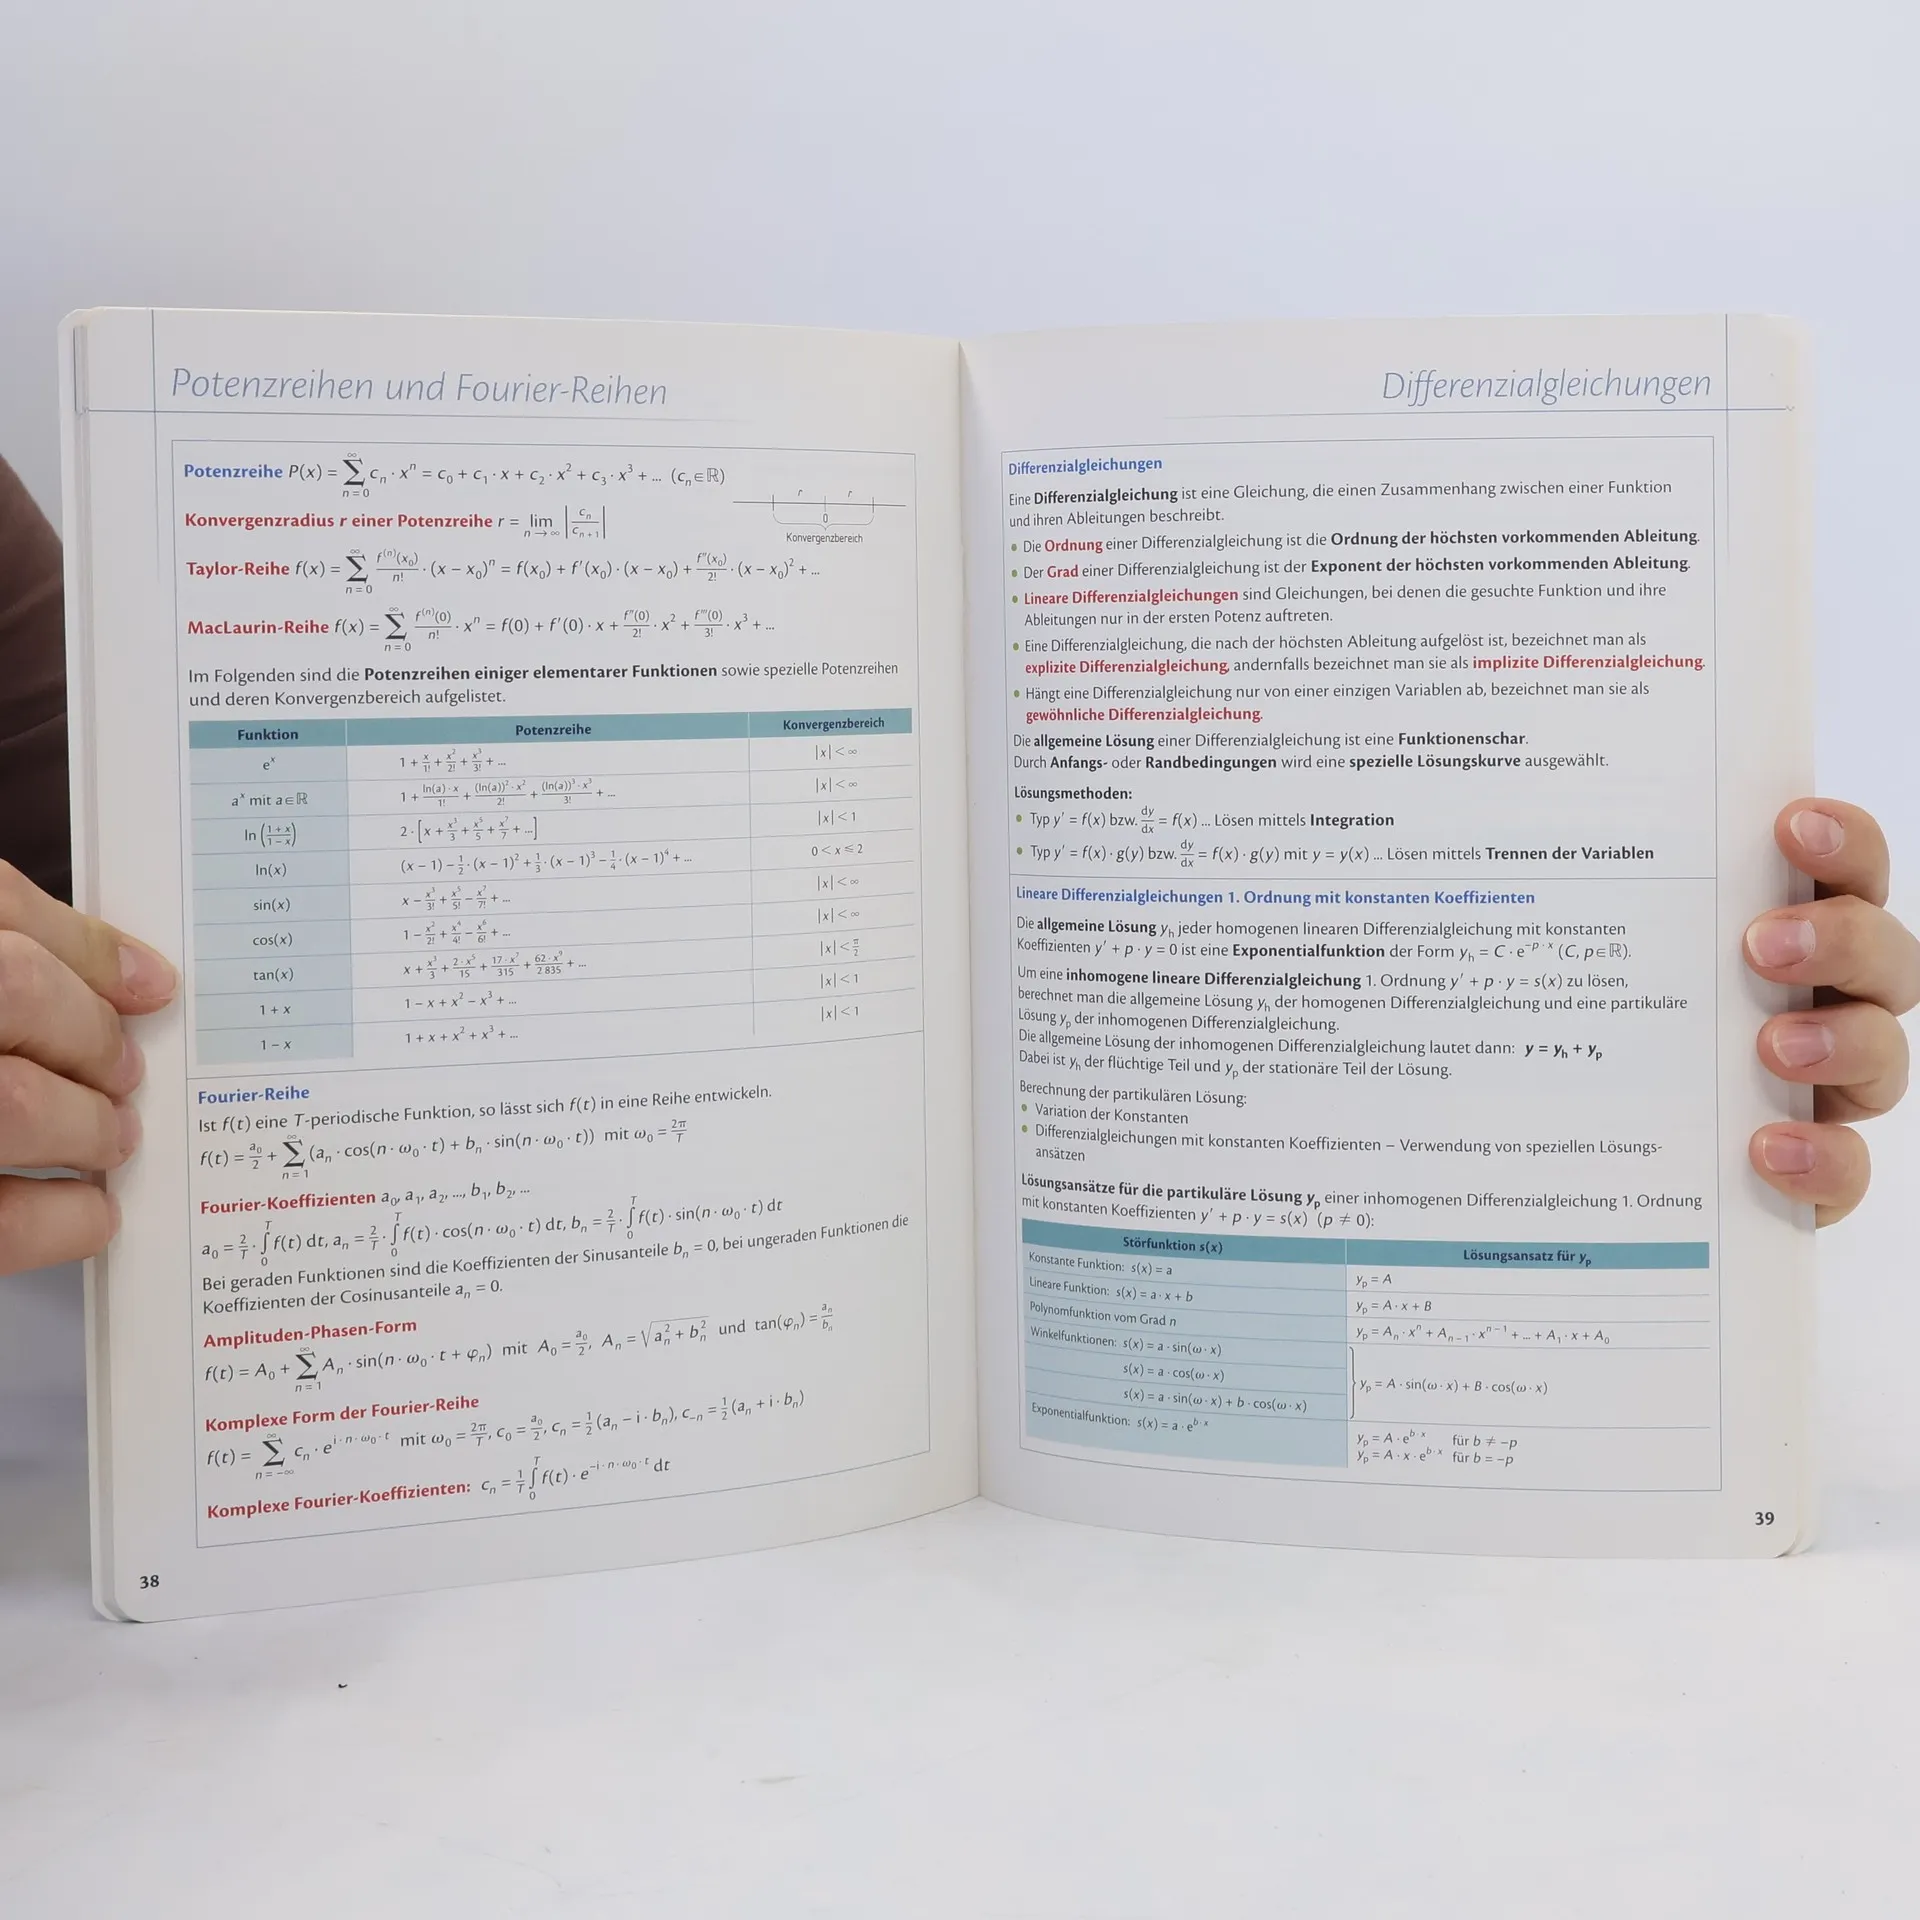 Potenzreihen und Fourier-Reihen
Potenzreihe P(x) = ∑_{n=0}^{∞} cₙ · xⁿ = c₀ + c₁ · x + c₂ · x² + c₃ · x³ + ... (cₙ ∈ ℝ)
r r
0
Konvergenzbereich
Konvergenzradius r einer Potenzreihe r = lim_{n→∞} |cₙ/cₙ₊₁|
Taylor-Reihe f(x) = ∑_{n=0}^{∞} f⁽ⁿ⁾(x₀)/n! · (x − x₀)ⁿ = f(x₀) + f'(x₀) · (x − x₀) + f''(x₀)/2! · (x − x₀)² + ...
MacLaurin-Reihe f(x) = ∑_{n=0}^{∞} f⁽ⁿ⁾(0)/n! · xⁿ = f(0) + f'(0) · x + f''(0)/2! · x² + f'''(0)/3! · x³ + ...
Im Folgenden sind die Potenzreihen einiger elementarer Funktionen sowie spezielle Potenzreihen
und deren Konvergenzbereich aufgelistet.
Funktion Potenzreihe Konvergenzbereich
eˣ 1 + x/1! + x²/2! + x³/3! + ... |x| < ∞
aˣ mit a ∈ ℝ 1 + ln(a) · x/1! + (ln(a))² · x²/2! + (ln(a))³ · x³/3! + ... |x| < ∞
ln((1 + x)/(1 − x)) 2 · [x + x³/3 + x⁵/5 + x⁷/7 + ...] |x| < 1
ln(x) (x − 1) − 1/2 · (x − 1)² + 1/3 · (x − 1)³ − 1/4 · (x − 1)⁴ + ... 0 < x ≤ 2
sin(x) x − x³/3! + x⁵/5! − x⁷/7! + ... |x| < ∞
cos(x) 1 − x²/2! + x⁴/4! − x⁶/6! + ... |x| < ∞
tan(x) x + x³/3 + 2 · x⁵/15 + 17 · x⁷/315 + 62 · x⁹/2 835 + ... |x| < π/2
1 + x 1 − x + x² − x³ + ... |x| < 1
1 − x 1 + x + x² + x³ + ... |x| < 1
Fourier-Reihe
Ist f(t) eine T-periodische Funktion, so lässt sich f(t) in eine Reihe entwickeln.
f(t) = a₀/2 + ∑_{n=1}^{∞} (aₙ · cos(n · ω₀ · t) + bₙ · sin(n · ω₀ · t)) mit ω₀ = 2π/T
Fourier-Koeffizienten a₀, a₁, a₂, ..., b₁, b₂, ...
a₀ = 2/T · ∫₀ᵀ f(t) dt, aₙ = 2/T · ∫₀ᵀ f(t) · cos(n · ω₀ · t) dt, bₙ = 2/T · ∫₀ᵀ f(t) · sin(n · ω₀ · t) dt
Bei geraden Funktionen sind die Koeffizienten der Sinusanteile bₙ = 0, bei ungeraden Funktionen die
Koeffizienten der Cosinusanteile aₙ = 0.
Amplituden-Phasen-Form
f(t) = A₀ + ∑_{n=1}^{∞} Aₙ · sin(n · ω₀ · t + φₙ) mit A₀ = a₀/2, Aₙ = √(aₙ² + bₙ²) und tan(φₙ) = aₙ/bₙ
Komplexe Form der Fourier-Reihe
f(t) = ∑_{n=−∞}^{∞} cₙ · e^{i · n · ω₀ · t} mit ω₀ = 2π/T, c₀ = a₀/2, cₙ = 1/2 (aₙ − i · bₙ), c₋ₙ = 1/2 (aₙ + i · bₙ)
Komplexe Fourier-Koeffizienten: cₙ = 1/T ∫₀ᵀ f(t) · e^{−i · n · ω₀ · t} dt
38
Differenzialgleichungen
Differenzialgleichungen
Eine Differenzialgleichung ist eine Gleichung, die einen Zusammenhang zwischen einer Funktion
und ihren Ableitungen beschreibt.
• Die Ordnung einer Differenzialgleichung ist die Ordnung der höchsten vorkommenden Ableitung.
• Der Grad einer Differenzialgleichung ist der Exponent der höchsten vorkommenden Ableitung.
• Lineare Differenzialgleichungen sind Gleichungen, bei denen die gesuchte Funktion und ihre
Ableitungen nur in der ersten Potenz auftreten.
• Eine Differenzialgleichung, die nach der höchsten Ableitung aufgelöst ist, bezeichnet man als
explizite Differenzialgleichung, andernfalls bezeichnet man sie als implizite Differenzialgleichung.
• Hängt eine Differenzialgleichung nur von einer einzigen Variablen ab, bezeichnet man sie als
gewöhnliche Differenzialgleichung.
Die allgemeine Lösung einer Differenzialgleichung ist eine Funktionenschar.
Durch Anfangs- oder Randbedingungen wird eine spezielle Lösungskurve ausgewählt.
Lösungsmethoden:
• Typ y' = f(x) bzw. dy/dx = f(x) ... Lösen mittels Integration
• Typ y' = f(x) · g(y) bzw. dy/dx = f(x) · g(y) mit y = y(x) ... Lösen mittels Trennen der Variablen
Lineare Differenzialgleichungen 1. Ordnung mit konstanten Koeffizienten
Die allgemeine Lösung yₕ jeder homogenen linearen Differenzialgleichung mit konstanten
Koeffizienten y' + p · y = 0 ist eine Exponentialfunktion der Form yₕ = C · e^{−p · x} (C, p ∈ ℝ).
Um eine inhomogene lineare Differenzialgleichung 1. Ordnung y' + p · y = s(x) zu lösen,
berechnet man die allgemeine Lösung yₕ der homogenen Differenzialgleichung und eine partikuläre
Lösung yₚ der inhomogenen Differenzialgleichung.
Die allgemeine Lösung der inhomogenen Differenzialgleichung lautet dann: y = yₕ + yₚ
Dabei ist yₕ der flüchtige Teil und yₚ der stationäre Teil der Lösung.
Berechnung der partikulären Lösung:
• Variation der Konstanten
• Differenzialgleichungen mit konstanten Koeffizienten – Verwendung von speziellen Lösungs-
ansätzen
Lösungsansätze für die partikuläre Lösung yₚ einer inhomogenen Differenzialgleichung 1. Ordnung
mit konstanten Koeffizienten y' + p · y = s(x) (p ≠ 0):
Störfunktion s(x) Lösungsansatz für yₚ
Konstante Funktion: s(x) = a yₚ = A
Lineare Funktion: s(x) = a · x + b yₚ = A · x + B
Polynomfunktion vom Grad n yₚ = Aₙ · xⁿ + Aₙ₋₁ · xⁿ⁻¹ + ... + A₁ · x + A₀
Winkelfunktionen: s(x) = a · sin(ω · x)
s(x) = a · cos(ω · x) yₚ = A · sin(ω · x) + B · cos(ω · x)
s(x) = a · sin(ω · x) + b · cos(ω · x)
Exponentialfunktion: s(x) = a · e^{b · x} yₚ = A · e^{b · x} für b ≠ −p
yₚ = A · x · e^{b · x} für b = −p
39